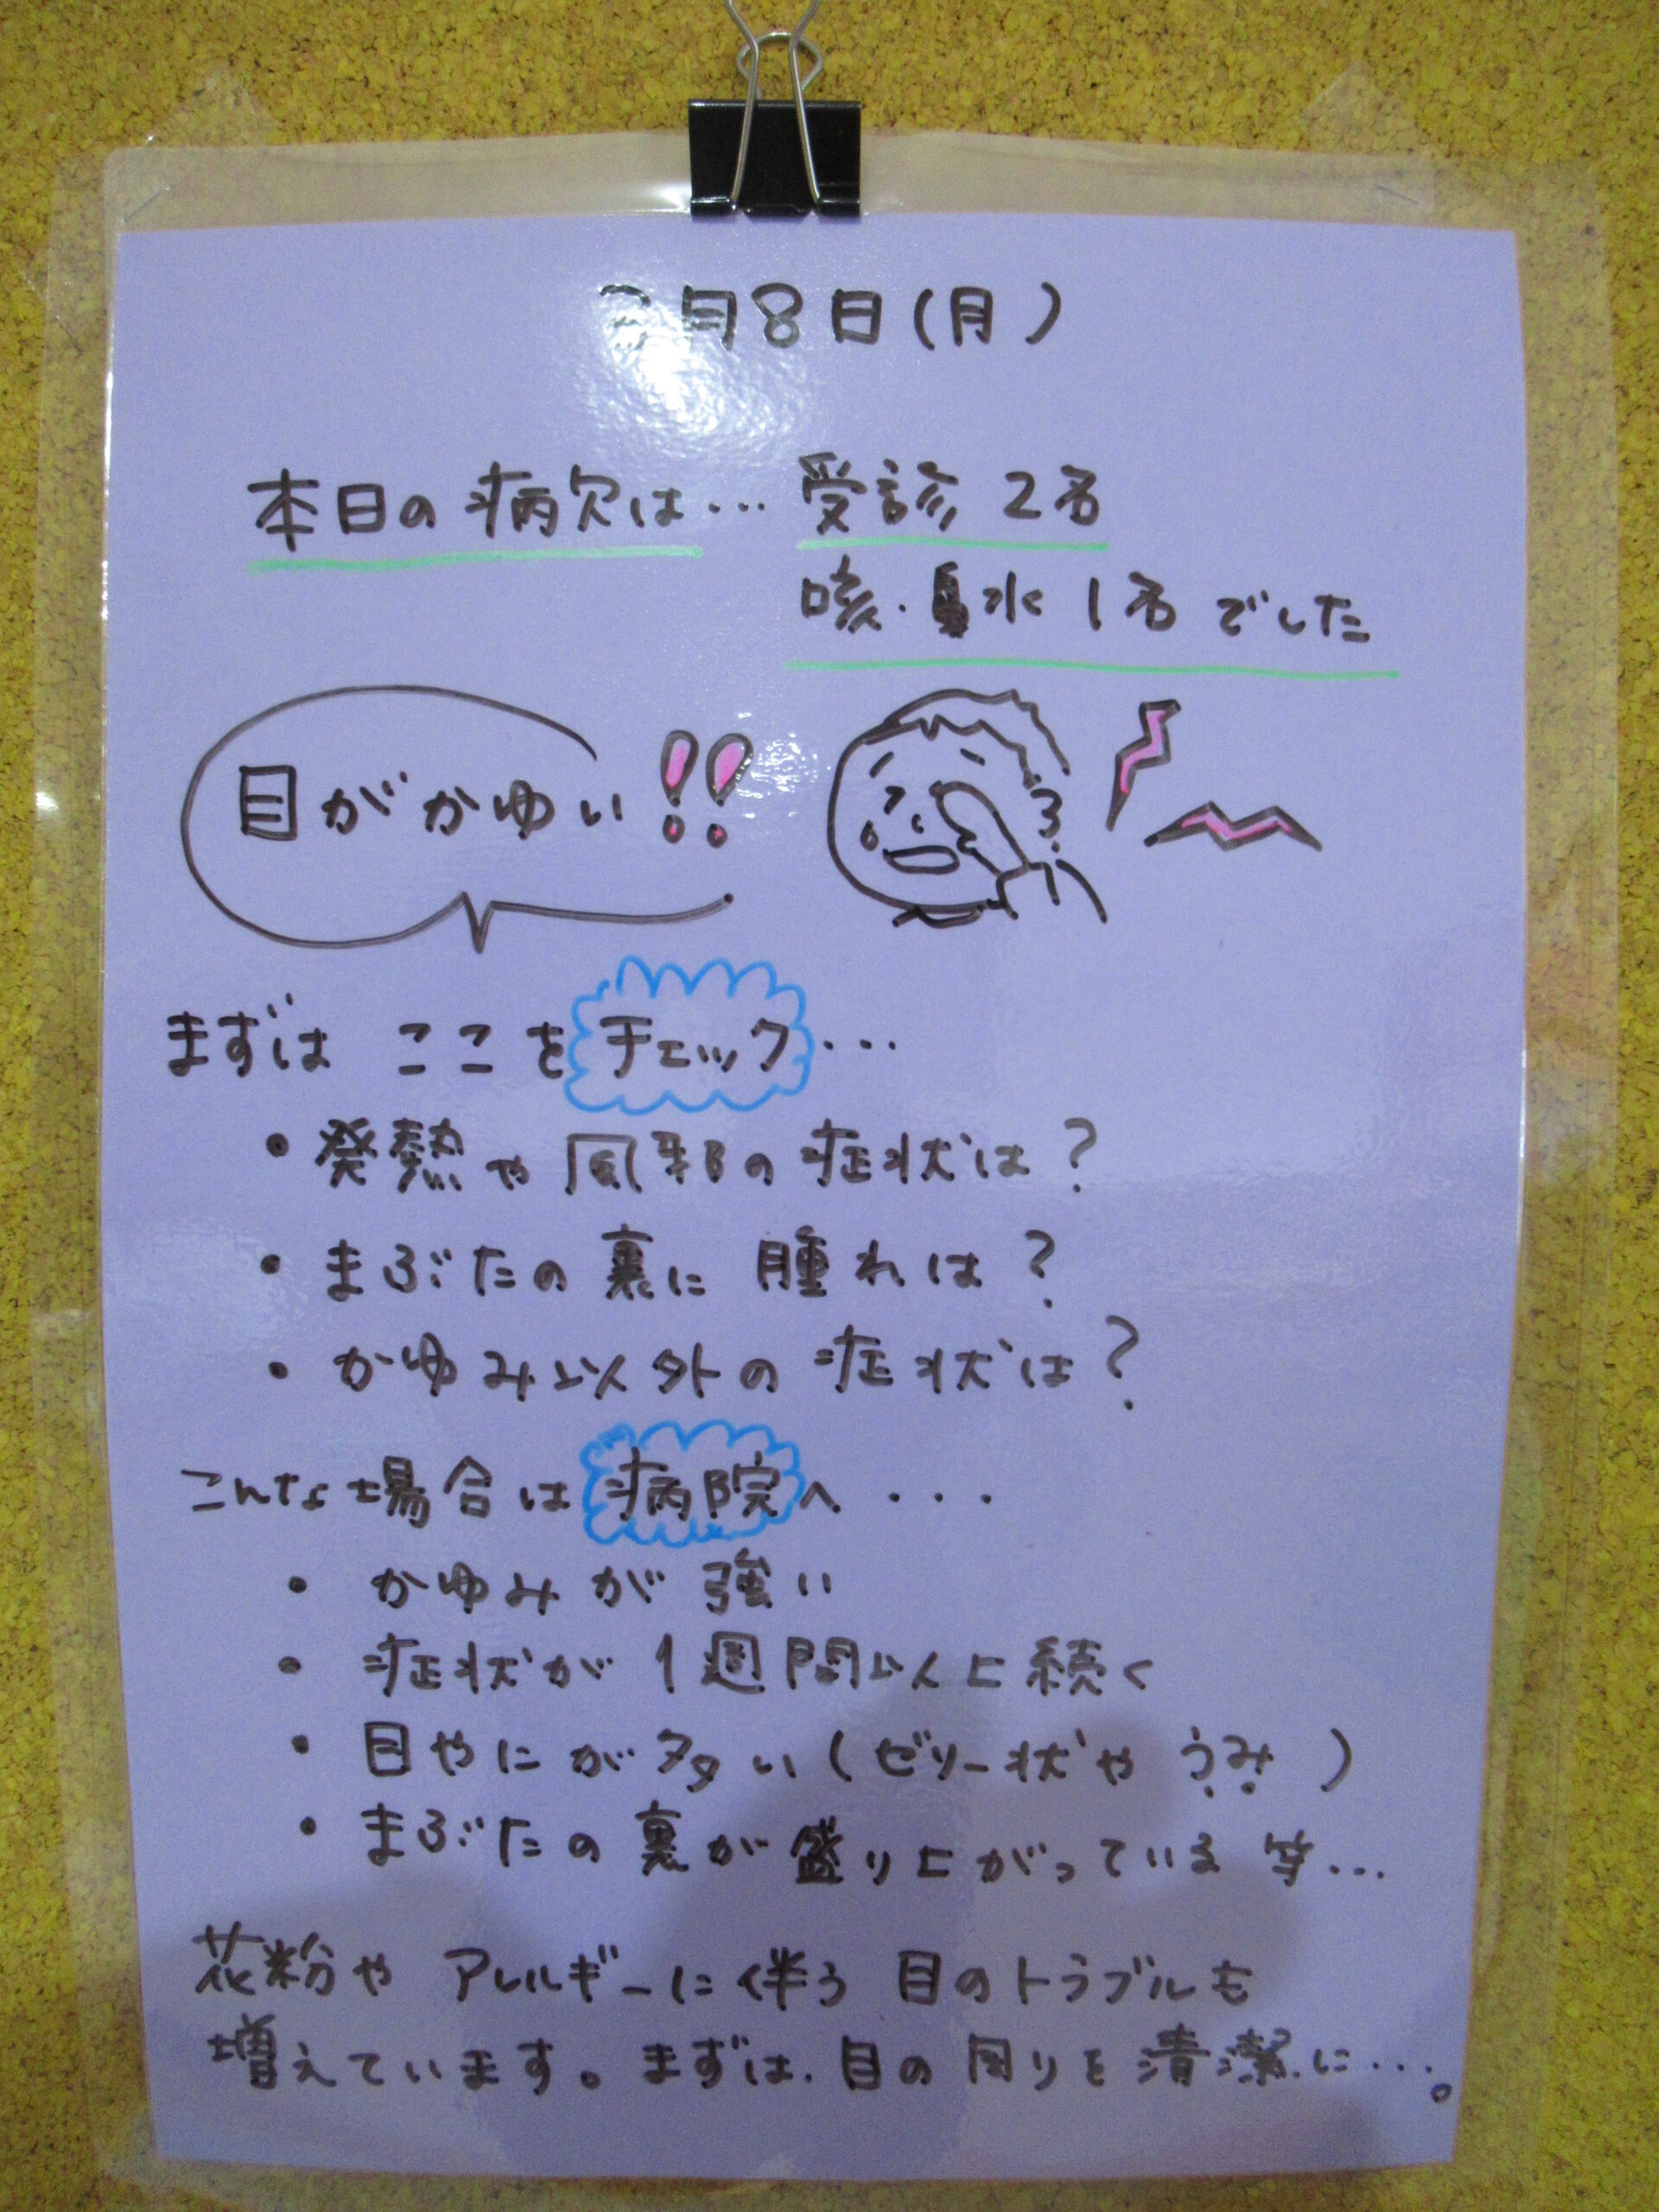 月8日(月)
本日の病欠は… 受診 2名
咳・鼻水 1名 でした
目がかゆい!!
まずは ここをチェック…
・発熱や風邪の症状は?
・まぶたの裏に腫れは?
・かゆみ以外の症状は?
こんな場合は病院へ・・・
・かゆみが強い
・症状が1週間以上続く
・目やにが多い(ゼリー状やうみ)
・まぶたの裏が盛り上がっている等…
花粉や アレルギーに伴う 目のトラブルも
増えています。まずは、目の周りを清潔に…。